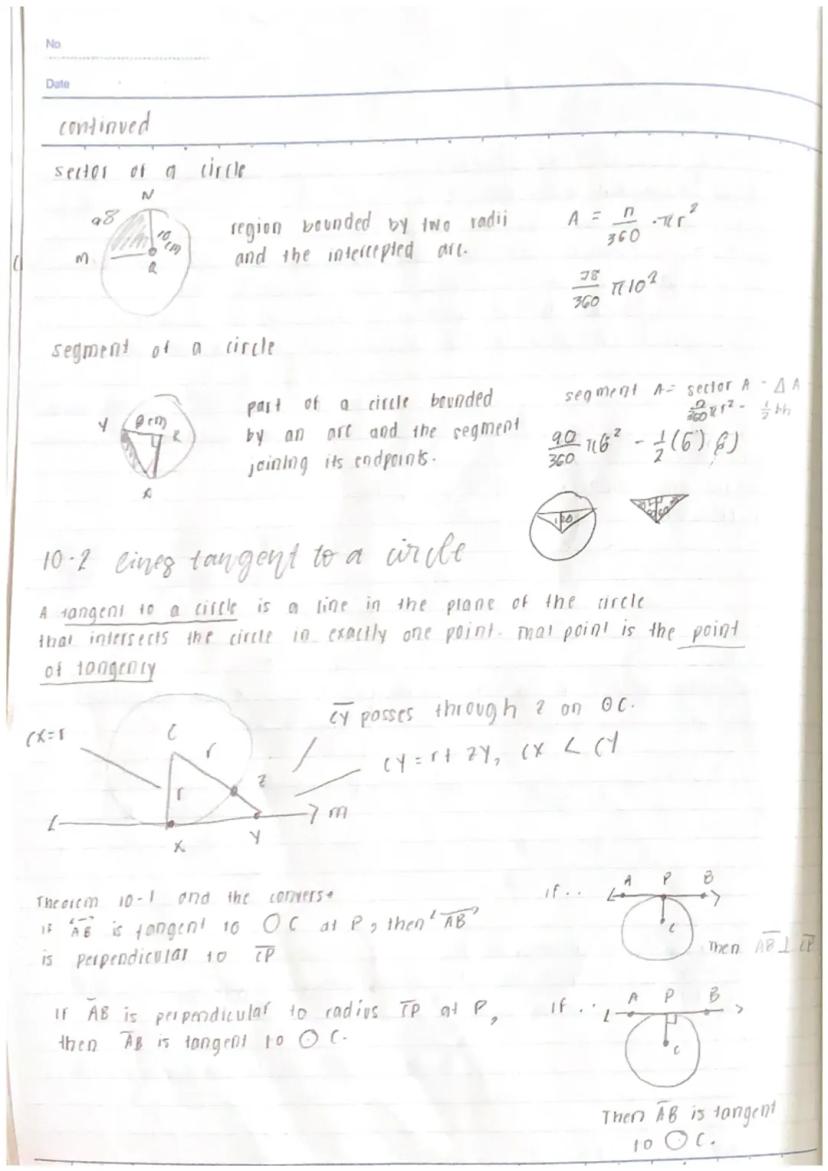 No
Date
continued
sector of a circle
N
98
10 cm
M
Q
region bounded by two radii
and the intercepted arc.
A = n/360 · πr²
98/360 π10²
segment of a circle
Y
6cm
R
X
part of a circle bounded
by an arc and the segment
joining its endpoints.
segment A = sector A - Δ A
n/360 πr² - 1/2 bh
90/360 π6² - 1/2 (6)(6)
120
10-2 lines tangent to a circle
A tangent to a circle is a line in the plane of the circle
that intersects the circle in exactly one point. That point is the point
of tangency
CX=r
C
r
r
Z
X
Y
m
CY passes through Z on ⊙C.
CY = r + ZY, CX < CY
Theorem 10-1 and the converse
If AB is tangent to ⊙C at P, then AB
is perpendicular to CP
if ..
A P B
C
Then AB ⊥ CP
If AB is perpendicular to radius CP at P,
then AB is tangent to ⊙C.
If ..
A P B
C
Then AB is tangent
to ⊙C.